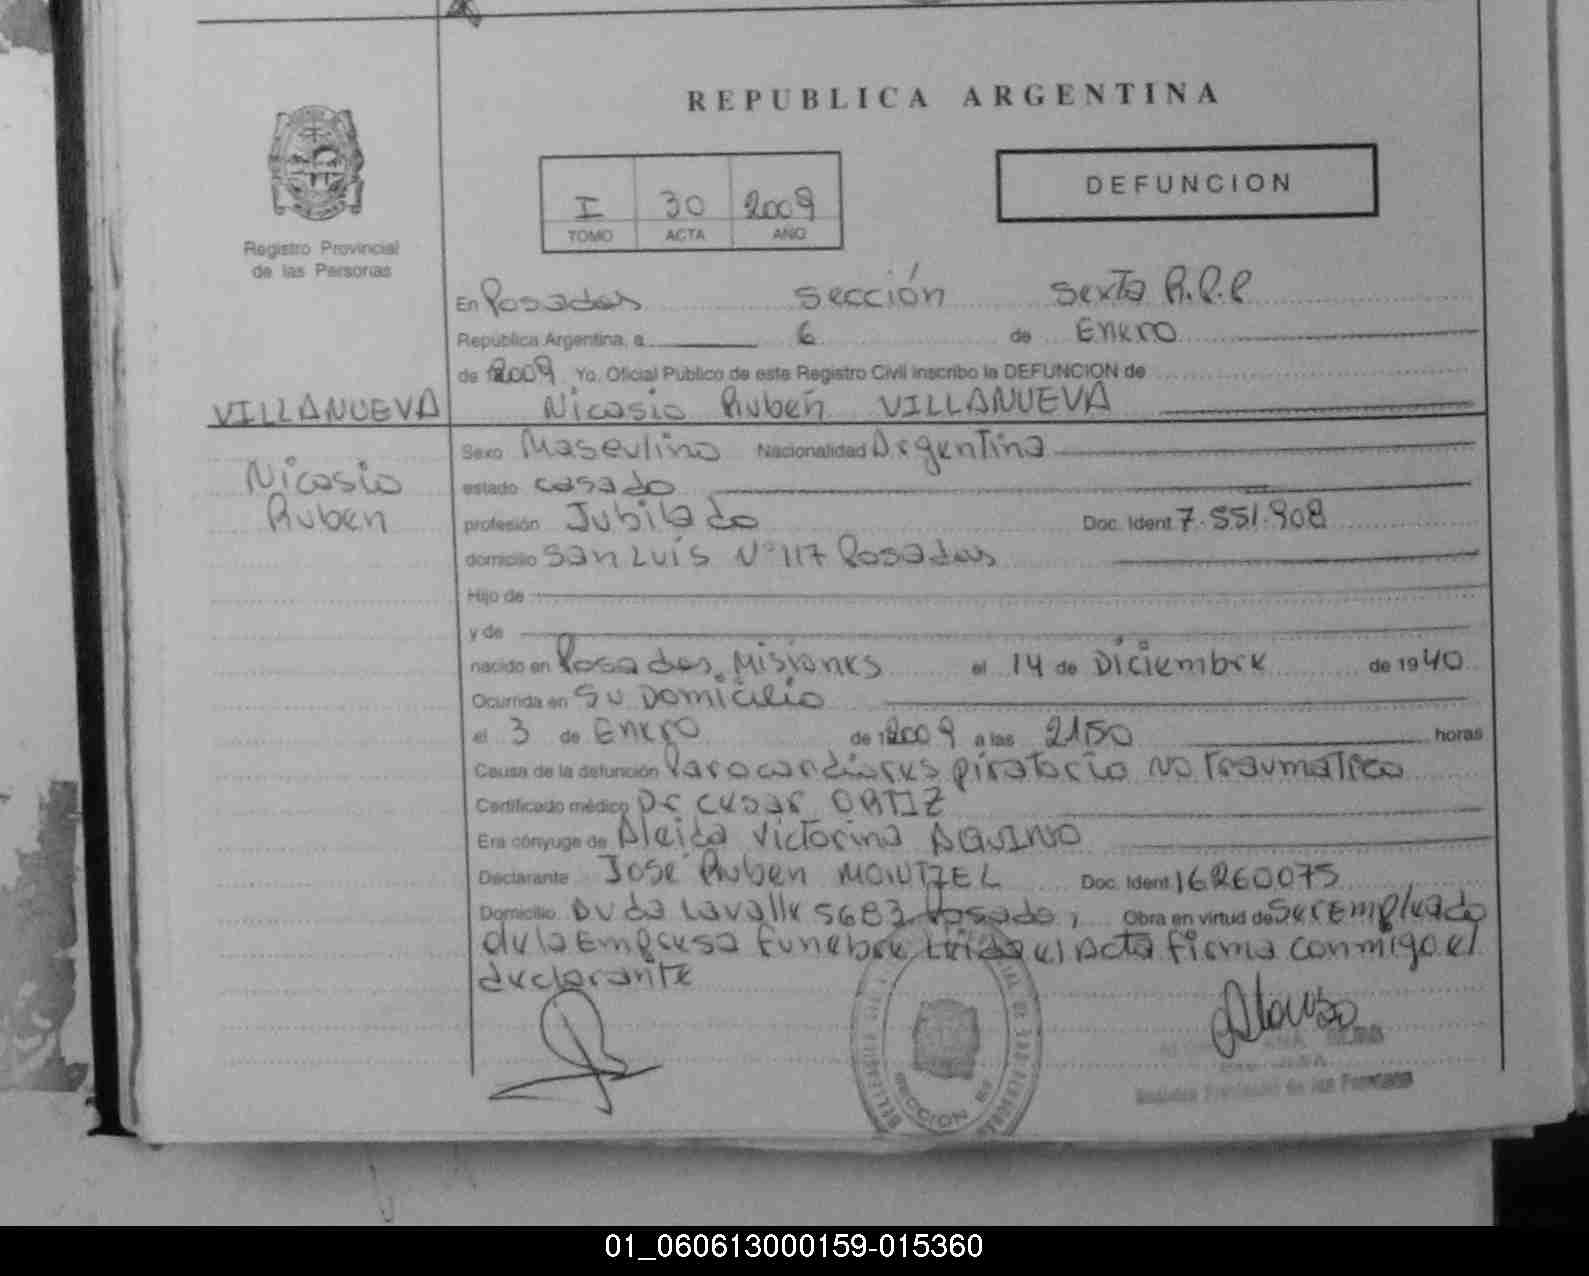 REPUBLICA ARGENTINA
DEFUNCION
I 30 2009
TOMO ACTA AÑO
Registro Provincial
de las Personas
En Posadas sección sexta R.P.P
República Argentina, a 6 de Enero
de 2009 Yo, Oficial Público de este Registro Civil inscribo la DEFUNCION de
VILLANUEVA
Nicasio Ruben VILLANUEVA
Nicasio
Ruben
Sexo Masculino Nacionalidad Argentina
estado casado
profesión Jubilado Doc. Ident 7.551.908
domicilio San Luis N° 117 Posadas
Hijo de
y de
nacido en Posadas, Misiones el 14 de Diciembre de 1940
Ocurrida en Su Domicilio
el 3 de Enero de 2009 a las 2150 horas
Causa de la defunción Parocardiorespiratorio no traumatico
Certificado médico Dr Cesar ORTIZ
Era cónyuge de Aleida Victorina AQUINO
Declarante José Ruben Doc. Ident 16260075
Domicilio Avda Lavalle 5683 Posada, Obra en virtud de Ser Empleado
de la Empresa funebre Leida el Acta firma conmigo el
declarante
SECCION
Registro Provincial de las Personas
01_060613000159-015360